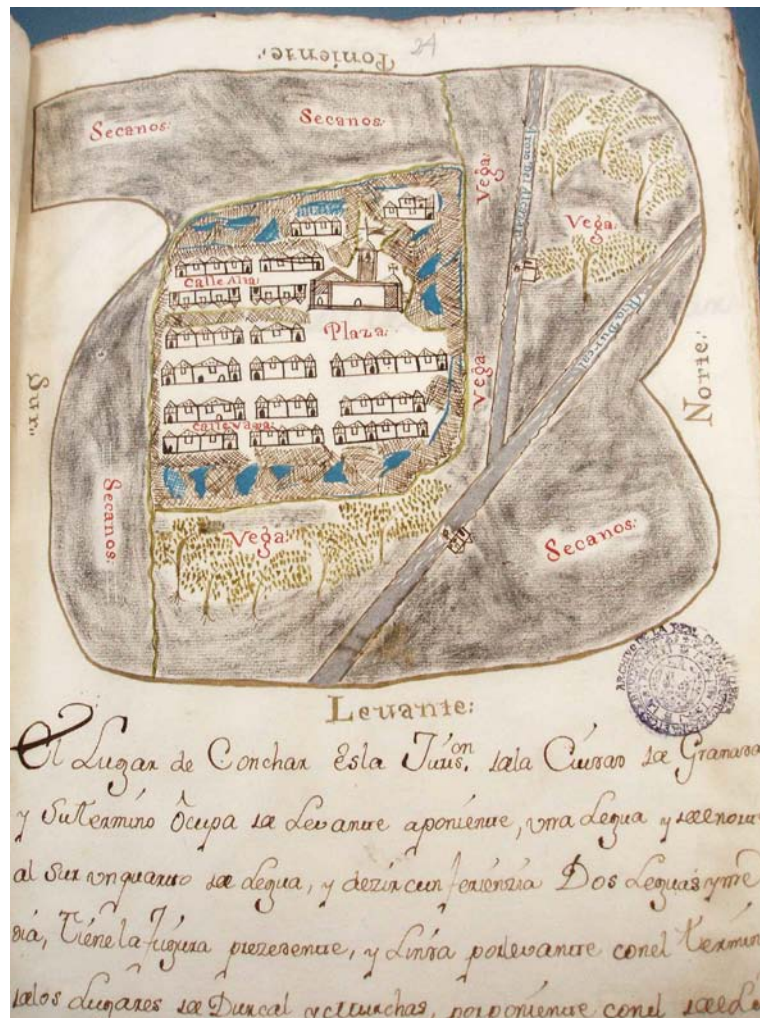 24
Poniente:
Secanos:
Secanos:
Vega:
Vega:
Calle Alta
Plaza:
Rio Durcal
Norte:
Sur:
Vega:
calle vaja
Secanos:
Vega:
Secanos:
Levante:
El Lugar de Conchar Es la Juris.on dela Ciudad de Granada
y su termino Ocupa de Levante aponiente, vna Legua y de enorte
al Sur vn quarto de Legua, y de zircunferienzia Dos Leguas y me
dia, tiene la figura prezedente, y Linda por levante con el termin
de los Lugares de Durcal y Murchas, por poniente con el de el L